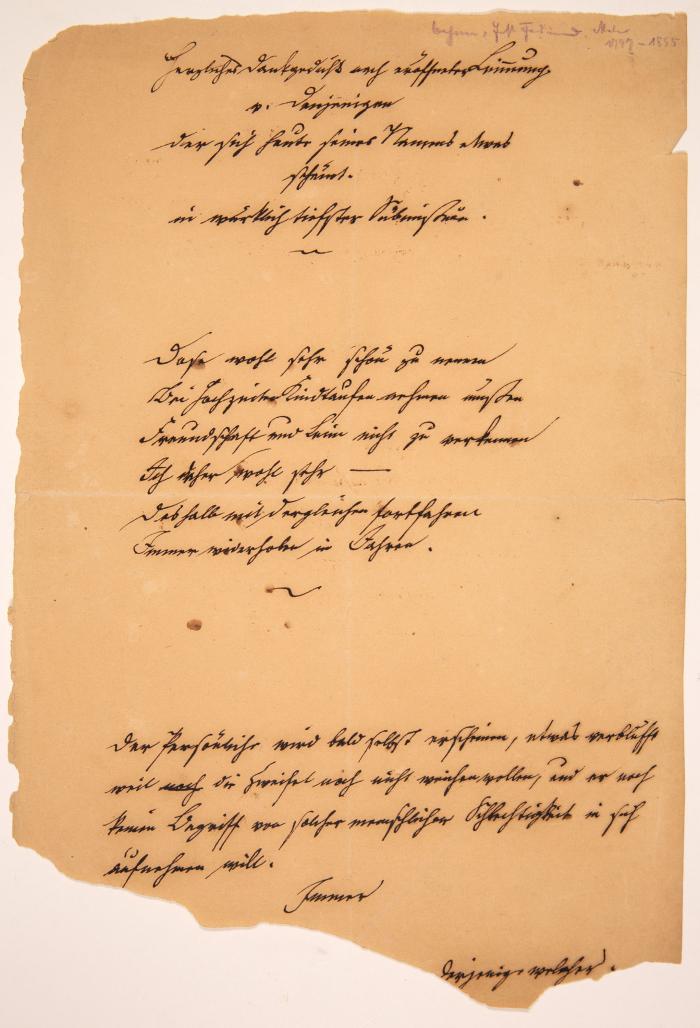 1797 - 1855
Herzliches Dankgedicht nach eröffneter
v. Denjenigen
der sich heute seines Namens etwas
schämt.
in würklich tiefster
Dass wohl sehr schön zu nennen
Bei Hochzeiten Kindtaufen nehmen müssen
Freundschaft und Leim nicht zu verkennen
Ich daher wohl sehr —
Deshalb mit dergleichen fortfahren
Immer wiederholen in Jahren.
Der Persönliche wird bald selbst erscheinen, etwas verblüfft
weil noch die Zweifel noch nicht weichen wollen, und er noch
keinen Begriff von solcher menschlicher Schlechtigkeit in sich
aufnehmen will.
Immer
derjenige welcher.